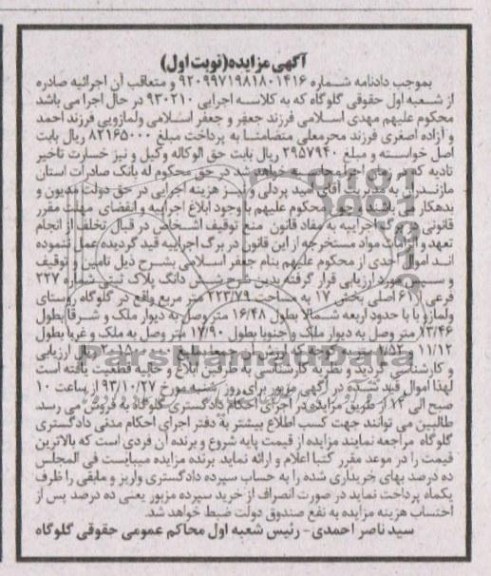 آگهی مزایده(نوبت اول)
بموجب دادنامه شماره ۹۲۰۹۹۷۱۹۸۱۸۰۱۴۱۶ و متعاقب آن اجرائیه صادره
از شعبه اول حقوقی گلوگاه که به کلاسه اجرایی ۹۳۰۲۱۰ در حال اجرا می باشد
محکوم علیهم مهدی اسلامی فرزند جعفر و جعفر اسلامی ولمازویی فرزند احمد
و آزاده اصغری فرزند محرمعلی متضامنا به پرداخت مبلغ ۸۲۱۶۵۰۰۰ ریال بابت
اصل خواسته و مبلغ ۳۹۵۷۹۴۰ ریال بابت حق الوکاله وکیل و نیز خسارت تاخیر
تادیه که در روز اجرا محاسبه خواهد شد در حق محکوم له بانک صادرات استان
مازندران به مدیریت آقای امید پردلی و نیز هزینه اجرایی در حق دولت مدیون و
بدهکار می باشد محکوم علیهم با وجود ابلاغ اجراییه و انقضای مهلت مقرر
قانونی اجراییه به مفاد قانون منع توقیف اشخاص در قبال تخلف از انجام
تعهد و الزامات مواد مستخرجه از این قانون در برگ اجراییه قید گردیده عمل ننموده
اند اموال احدی از محکوم علیهم بنام جعفر اسلامی بشرح ذیل تامین و توقیف
و سپس مورد ارزیابی قرار گرفته بدین شرح شش دانگ پلاک ثبتی شماره ۲۲۷
فرعی از ۶۱ اصلی بخش ۱۷ به مساحت ۲۲۳/۷۹ متر مربع واقع در گلوگاه روستای
ولمازو با حدود اربعه شمالا بطول ۱۶/۴۸ متر وصل به دیوار ملک و شرقا بطول
۲۳/۴۶ متر وصل به دیوار ملک و جنوبا بطول ۱۷/۹۰ متر وصل به ملک و غربا بطول
۱۱/۱۲ و ارزیابی
و کارشناسی گردید و نظریه کارشناسی به طرفین ابلاغ و حالیه قطعیت یافته است
لهذا اموال قید شده در آگهی مزبور برای روز شنبه مورخ ۹۳/۱۰/۲۷ از ساعت ۱۰
صبح الی ۱۲ از طریق مزایده در اجرای احکام دادگستری گلوگاه به فروش می رسد.
طالبین می توانند جهت کسب اطلاع بیشتر به دفتر اجرای احکام مدنی دادگستری
گلوگاه مراجعه نمایند مزایده از قیمت پایه شروع و برنده آن فردی است که بالاترین
قیمت را در موعد مقرر کتبا اعلام و ارائه نماید. برنده مزایده میبایست فی المجلس
ده درصد بهای خریداری شده را به حساب سپرده دادگستری واریز و مابقی را ظرف
یکماه پرداخت نماید در صورت انصراف از خرید سپرده مزبور یعنی ده درصد پس از
احتساب هزینه مزایده به نفع صندوق دولت ضبط خواهد شد.
سید ناصر احمدی - رئیس شعبه اول محاکم عمومی حقوقی گلوگاه